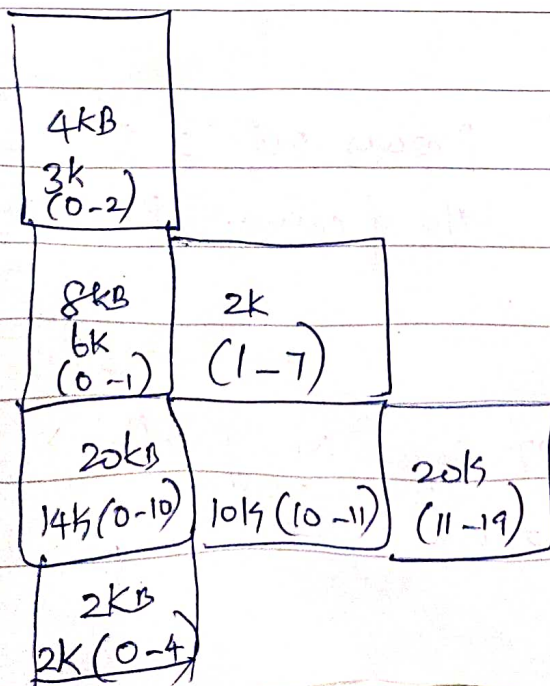 4KB
3K
(0-2)
8KB
6K
(0-1)
2K
(1-7)
20KB
14K (0-10)
10K (10-11)
20K
(11-19)
2KB
2K (0-4)